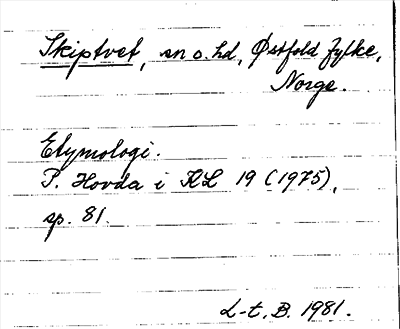 Skiptvet, sn o. hd, Østfold fylke,
Norge.
Etymologi.
P. Hovda i KL 19 (1975),
sp. 81.
L-t, B. 1981.